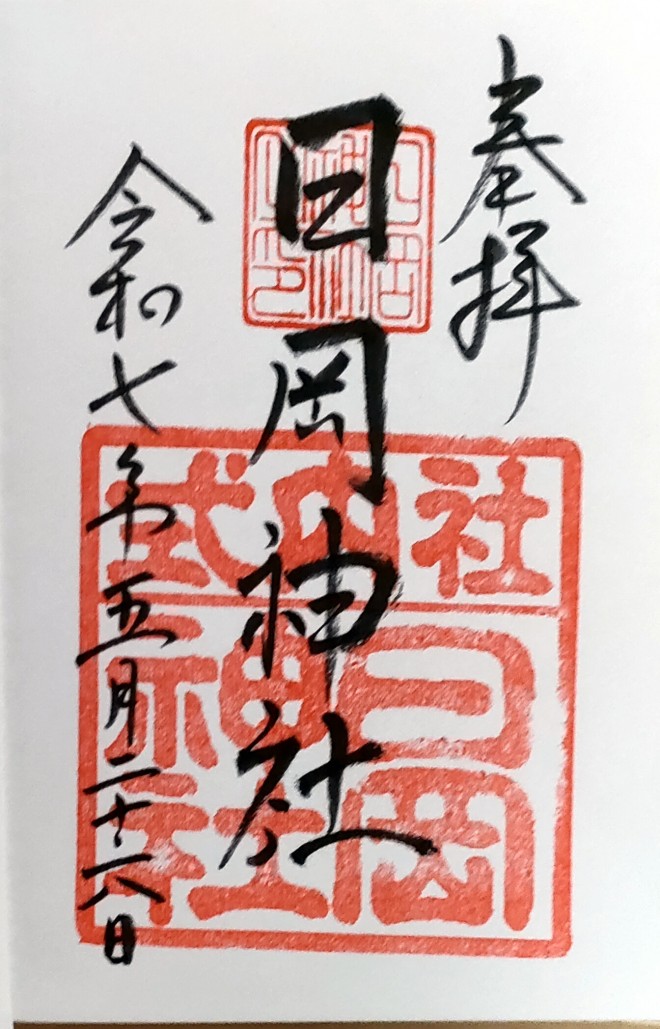 奉拝
日岡神社
令和七年五月二十六日
式内社
日岡神社